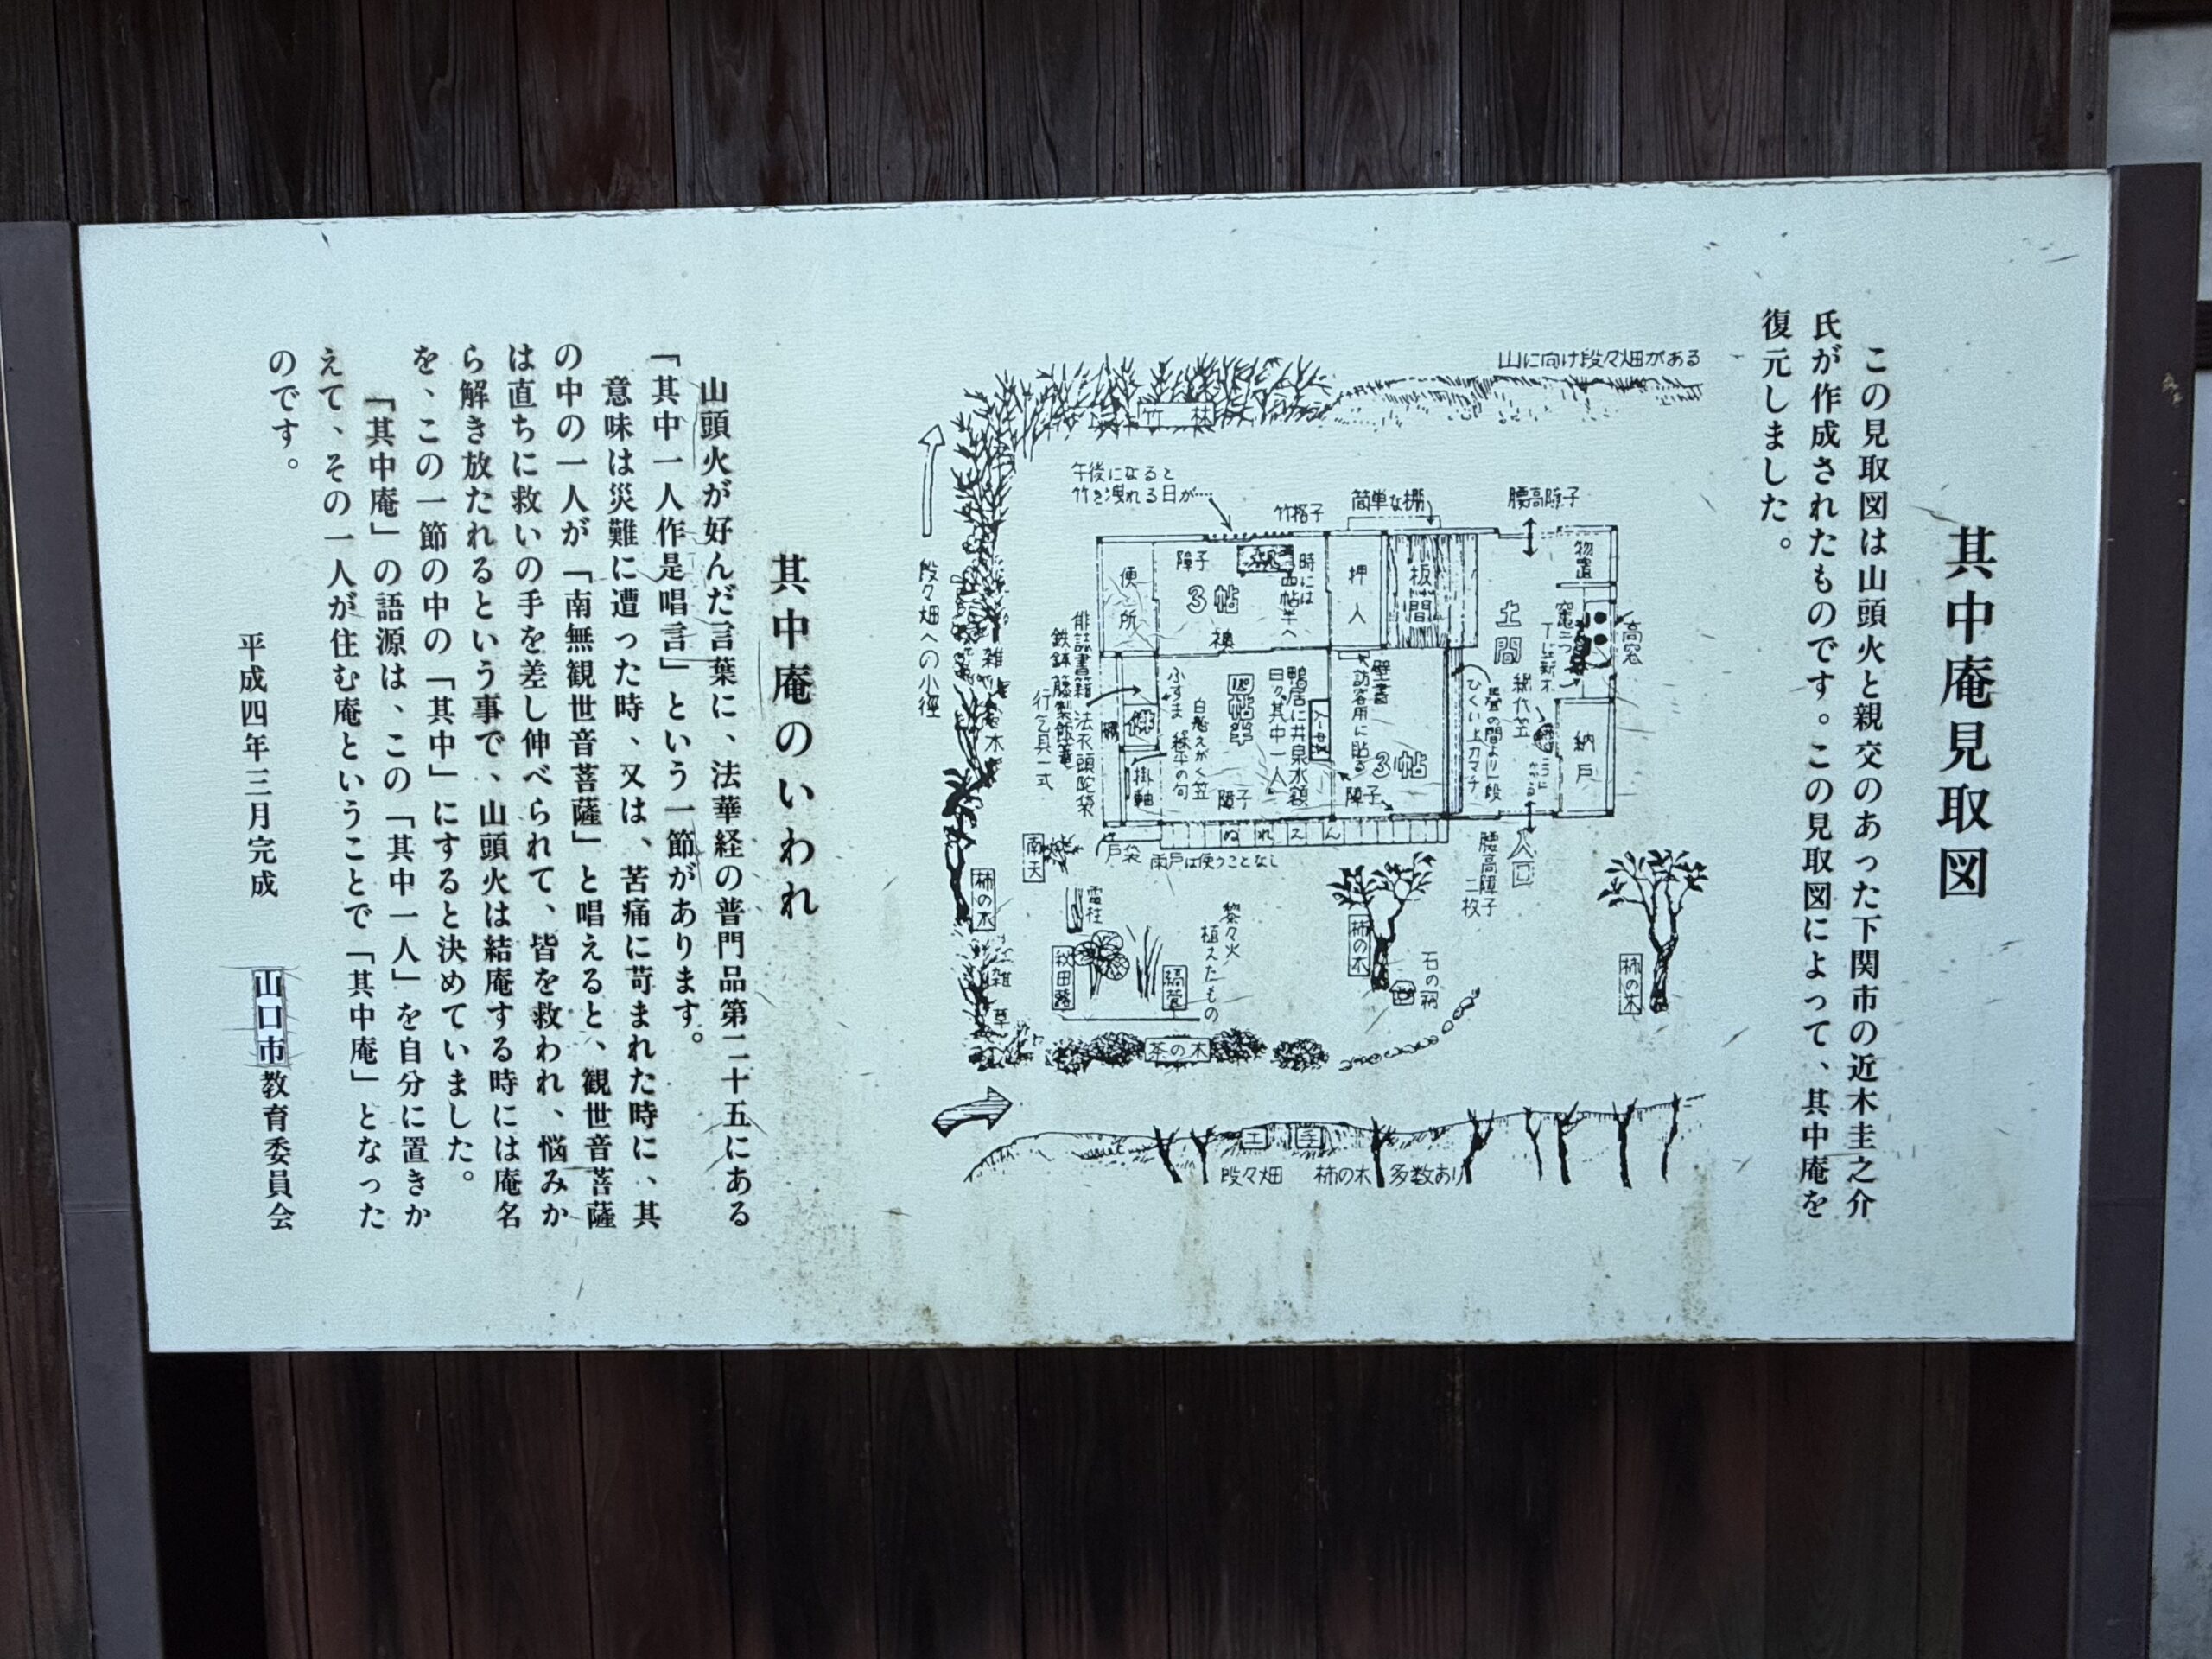 其中庵見取図
この見取図は山頭火と親交のあった下関市の近木圭之介
氏が作成されたものです。この見取図によって、其中庵を
復元しました。
山に向け段々畑がある
竹林
午後になると
竹を洩れる日が……
竹格子
簡単な棚
腰高障子
段々畑への小径
便所
障子
3帖
時には
四帖半へ
襖
押入
板間
土間
物置
高窓
納戸
網代笠
壁書
訪客用に貼る
3帖
四帖半
鴨居に井泉水額
日々其中一人
白船えがく笠
ふすま
障子
障子
棚
掛軸
俳誌書籍 法衣頭陀袋
行乞具一式
ぬれえん
戸袋
雨戸は使うことなし
腰高障子
二枚
入口
南天
柿の木
雑木
雑草
秋田蕗
縞萱
黎々火
植えたもの
柿の木
石の祠
柿の木
茶の木
段々畑
柿の木多数あり
其中庵のいわれ
山頭火が好んだ言葉に、法華経の普門品第二十五にある
「其中一人作是唱言」という一節があります。
意味は災難に遭った時、又は、苦痛に苛まれた時に、其
の中の一人が「南無観世音菩薩」と唱えると、観世音菩薩
は直ちに救いの手を差し伸べられて、皆を救われ、悩みか
ら解き放たれるという事で、山頭火は結庵する時には庵名
を、この一節の中の「其中」にすると決めていました。
「其中庵」の語源は、この「其中一人」を自分に置きか
えて、その一人が住む庵ということで「其中庵」となった
のです。
平成四年三月完成
山口市教育委員会